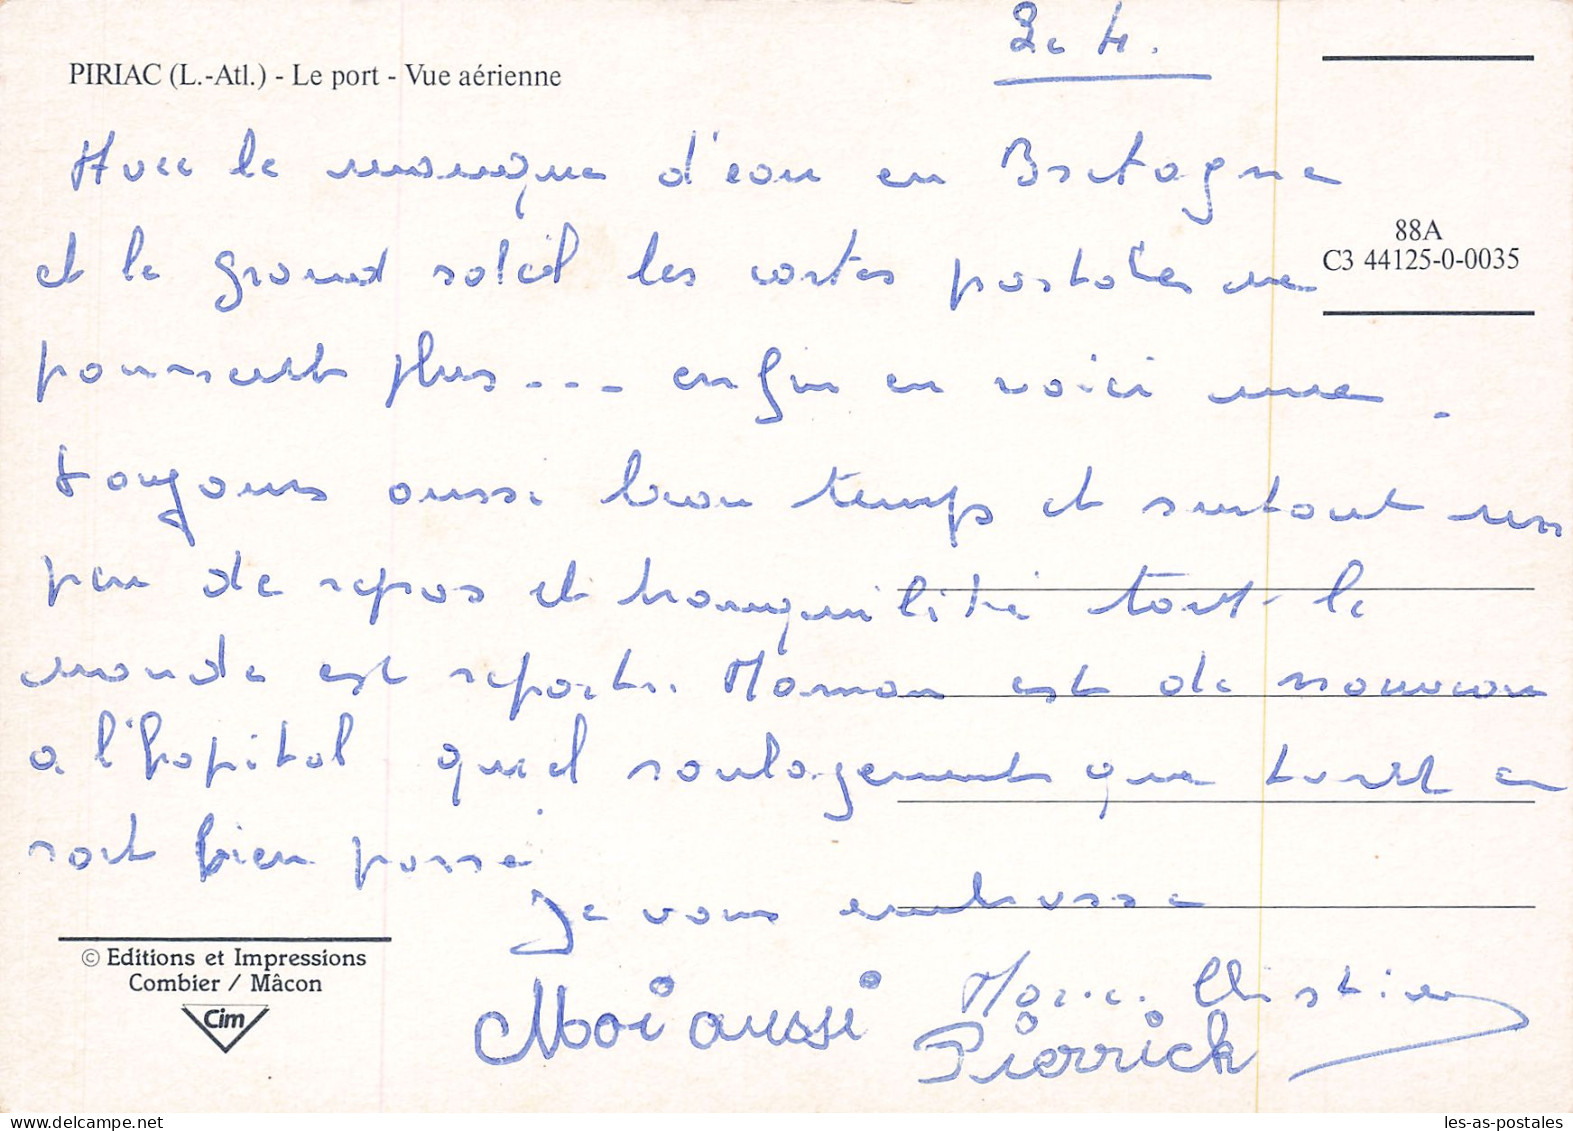 Le 4.
PIRIAC (L.-Atl.) - Le port - Vue aérienne
Avec le manque d'eau en Bretagne
et le grand soleil les cartes postales ne
poussent plus - - - enfin en voici une.
88A
C3 44125-0-0035
toujours aussi beau temps et surtout un
peu de repos et tranquilité tout le
monde est reparti. Maman est de nouveau
a l'hopital quel soulagement que tout ce
soit bien passé
Je vous embrasse
Marie Christine
Moi aussi Pierrick
© Editions et Impressions
Combier / Mâcon
Cim
les-as-postales